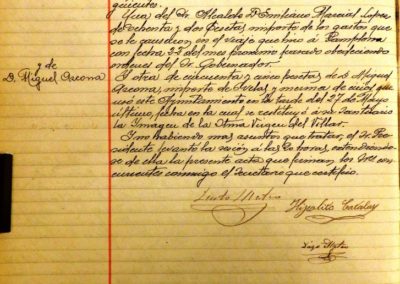 siguiente:
Una del Sr. Alcalde D. Emiliano Marcial Lopez
de ochenta y dos pesetas importe de los gastos que
se le causaron en el viaje que hizo á Pamplona
con fecha 22 del mes proximo pasado obedeciendo
ordenes del Sr. Gobernador.
y de
D. Miguel Arcona
Y otra de cincuenta y cinco pesetas de D. Miguel
Arcona, importe de velas y merma de cirios que
usó este Ayuntamiento en la tarde del 27 de Mayo
último, fecha en la cual se restituyó á su Santuario
la Imagen de la Stma. Virgen del Villar.
Y no habiendo mas asuntos que tratar, el Sr. Pre-
sidente levantó la sesión á las horas, extendiendo-
se de ella la presente acta que firman los Sres con-
currentes conmigo el Secretario que certifico.
Hipolito